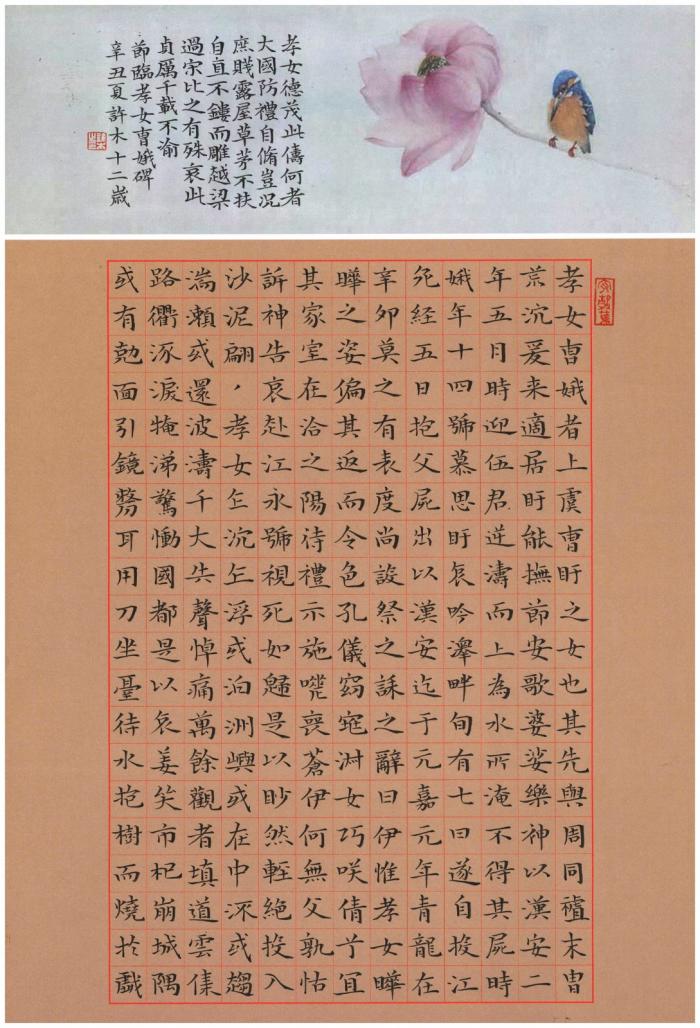 孝女德茂此儔何者
大國防禮自脩豈況
庶賤露屋草茅不扶
自直不鏤而雕越梁
過宋比之有殊哀此
貞厲千載不渝
節臨孝女曹娥碑
辛丑夏許木十二歲
孝女曹娥者上虞曹盱之女也其先與周同祖末胄
荒沉爰来適居盱能撫節安歌婆娑樂神以漢安二
年五月時迎伍君逆濤而上為水所淹不得其屍時
娥年十四號慕思盱哀吟澤畔旬有七日遂自投江
死經五日抱父屍出以漢安迄于元嘉元年青龍在
辛卯莫之有表度尚設祭之誄之辭曰伊惟孝女曄
曄之姿偏其返而令色孔儀窈窕淑女巧咲倩兮宜
其家室在洽之陽待禮示施嗟喪蒼伊何無父孰怙
訴神告哀赴江永號視死如歸是以眇然輕絕投入
沙泥翩，孝女乍沉乍浮或泊洲嶼或在中流或趨
湍瀨或還波濤千夫失聲悼痛萬餘觀者填道雲集
路衢泣淚掩涕驚慟國都是以哀姜哭市杞崩城隅
或有剋面引鏡剺耳用刀坐臺待水抱樹而燒於戲